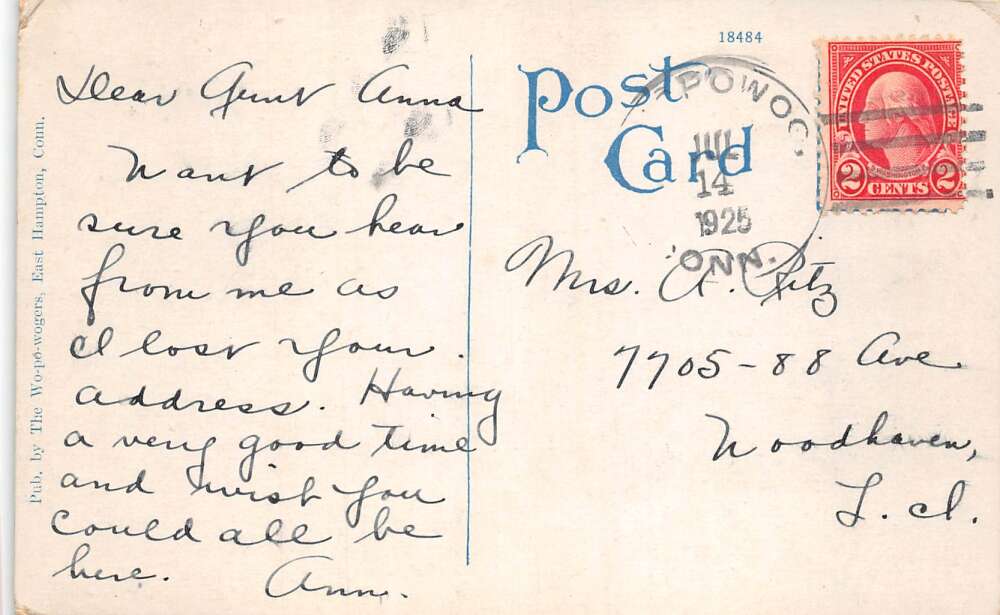 18484
Post
Card
POWOG,
JUL
14
1925
ONN.
UNITED STATES POSTAGE
WASHINGTON
2 CENTS 2
Pub. by The Wo-po-wogers, East Hampton, Conn.
Dear Aunt Anna
Want to be
sure you hear
from me as
I lost your
address. Having
a very good time
and wish you
could all be
here. Ann.
Mrs. A. Pitz
7705-88 Ave
Woodhaven,
L. I.